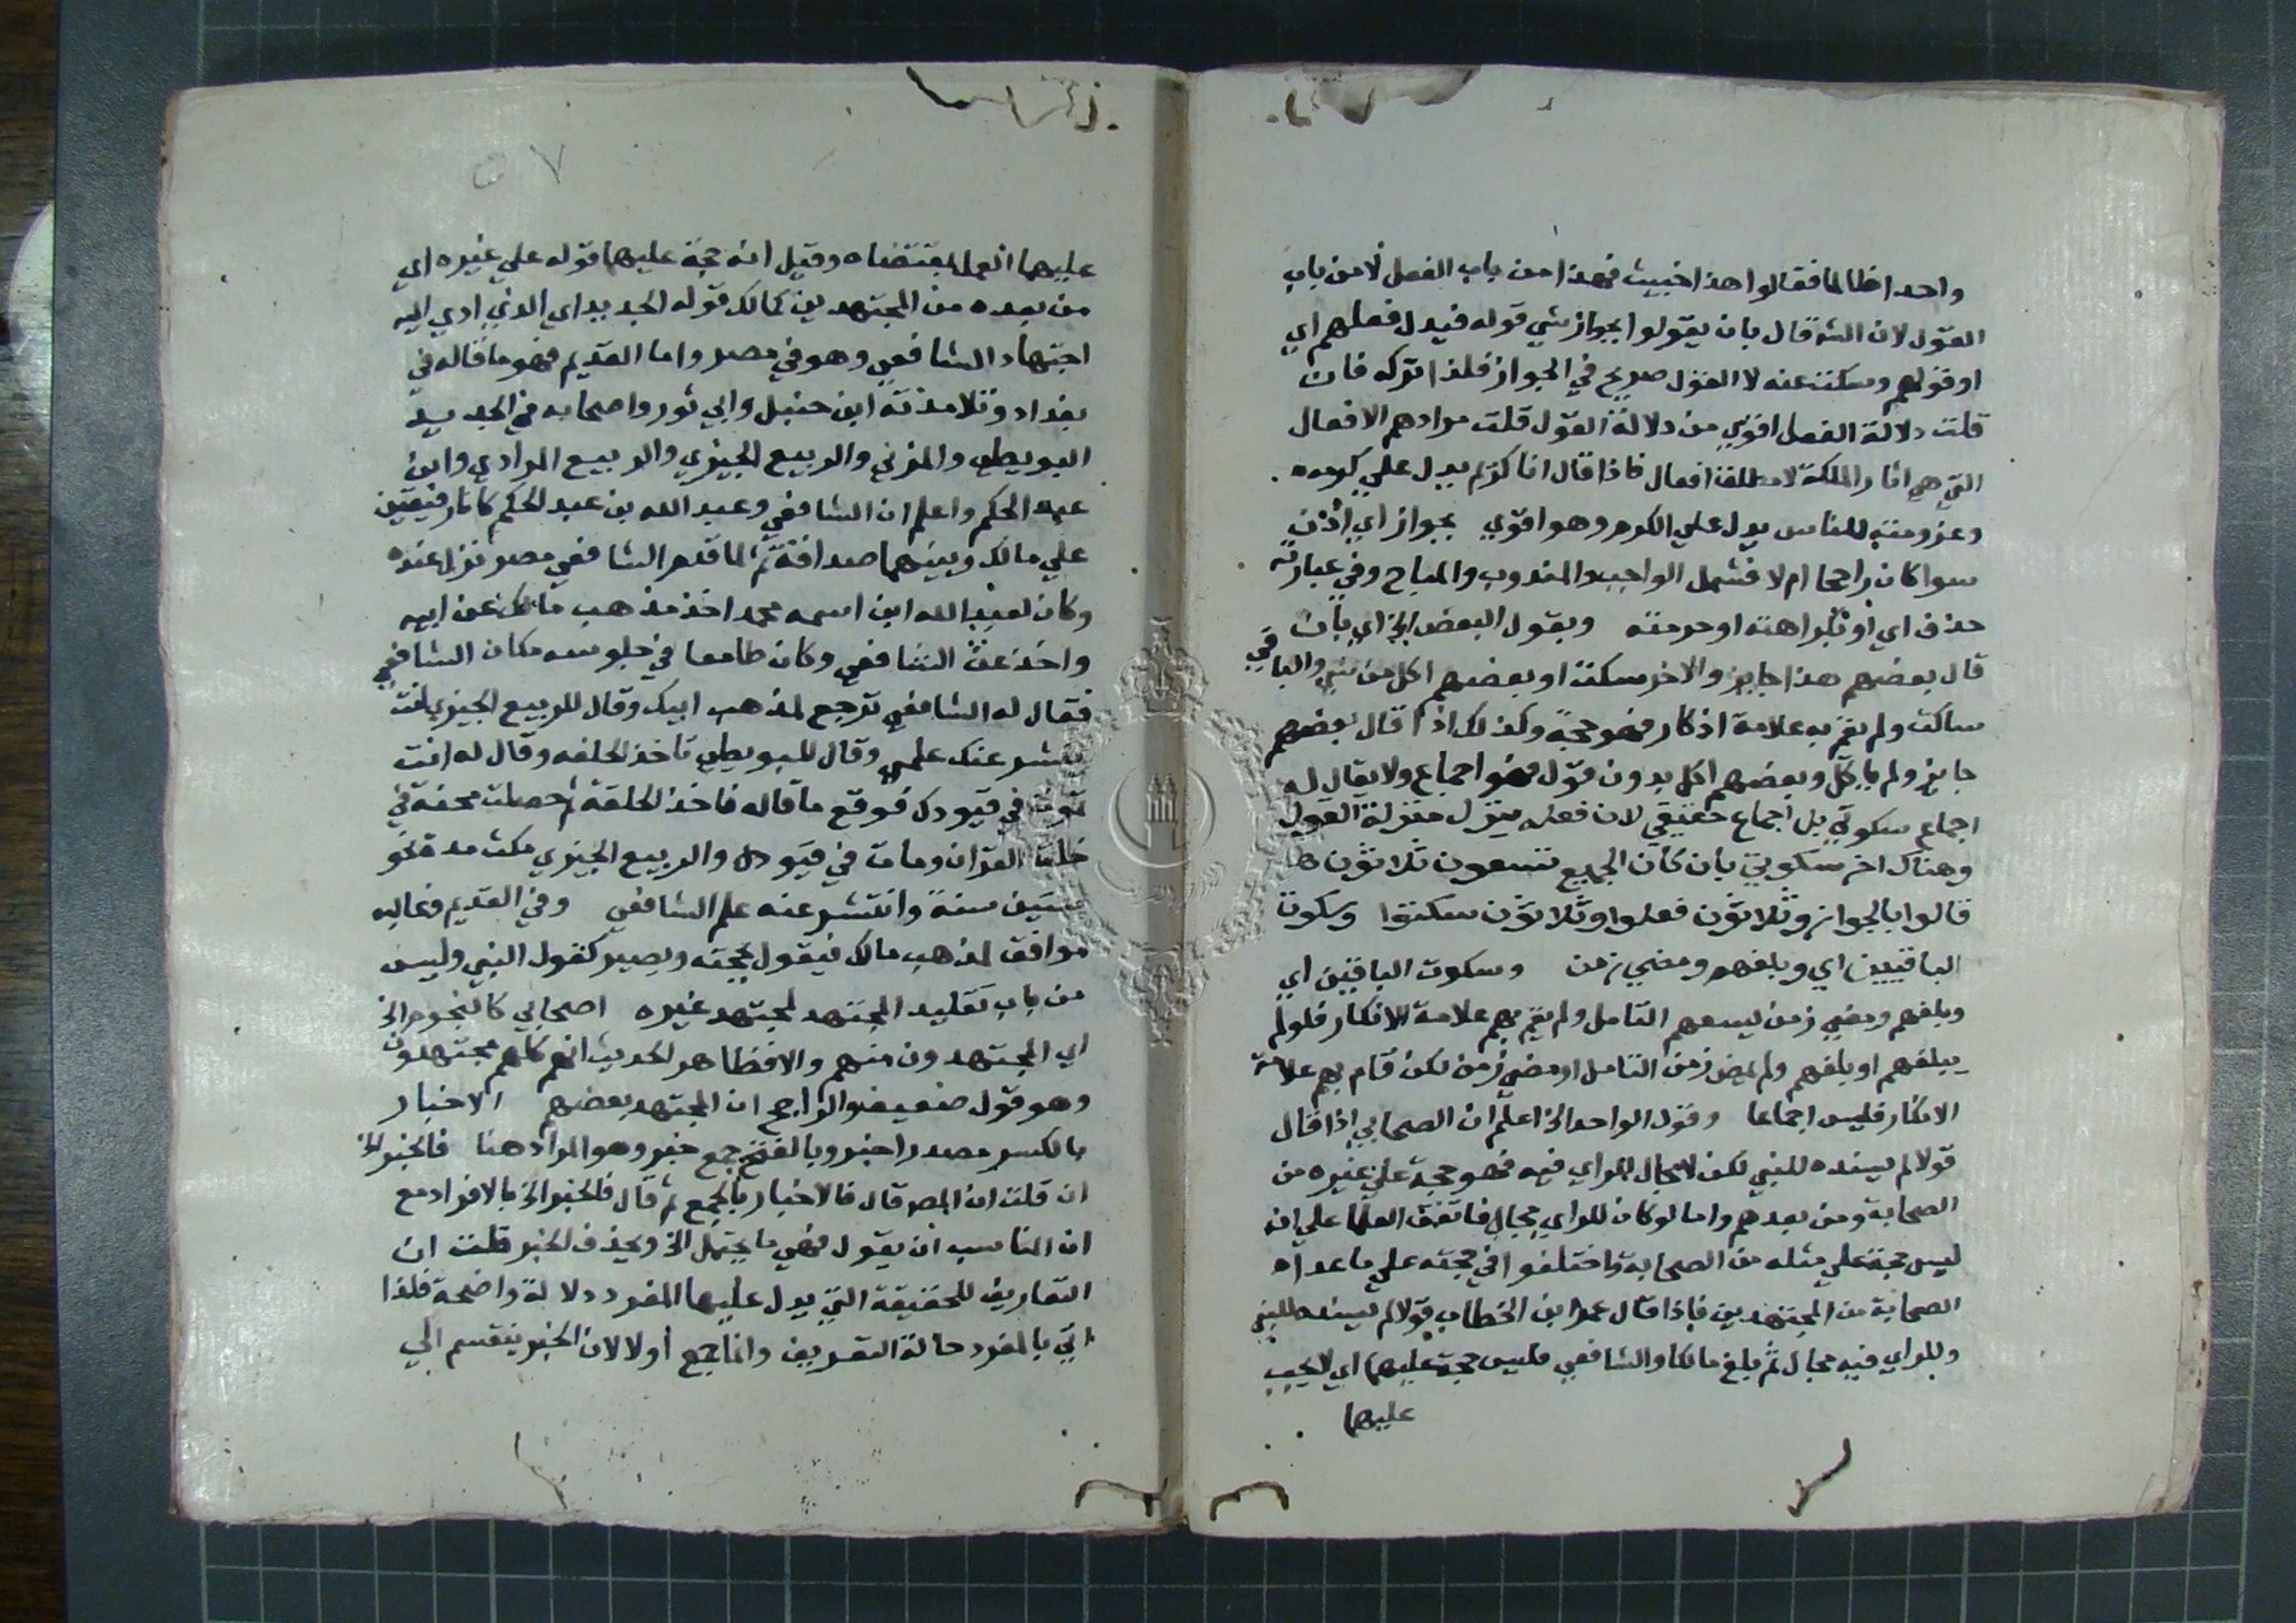 واحدا ظالما فقالوا هذا خبيث فهذا من باب الفعل لا من باب
القول لان الشه قال بان يقولوا بجواز شي قوله فيدل فعلهم اي
او قولهم وسكت عنه لا القول صريح في الجواز فلذا تركه فان
قلت دلالة الفعل اقوي من دلالة القول قلت مرادهم الافعال
التي هي اثار الملكة لا مطلق افعال فاذا قال انا كريم يدل علي كرمه
وعزومته للناس يدل علي الكرم وهو اقوي بجواز اي اذن
سوا كان راجحا ام لا فشمل الواجب والمندوب والمباح وفي عبارته
حذف اي او بكراهته او حرمته وبقول البعض الخ اي بان
قال بعضهم هذا جايز والاخر سكت او بعضهم اكل من شي والباقي
ساكت ولم يقم به علامة انكار فهو حجة وكذلك اذا قال بعضهم
جايز ولم ياكل وبعضهم اكل بدون قول فهو اجماع ولا يقال له
اجماع سكوتي بل اجماع حقيقي لان فعله ينزل منزلة القول
وهناك اخر سكوتي بان كان الجميع تسعون ثلاثون
قالوا بالجواز وثلاثون فعلوا وثلاثون سكتوا وسكوت
الباقيين اي وبلغهم ومضي زمن وسكوت الباقين اي
وبلغهم ومضي زمن ليسعهم التامل ولم يقم بهم علامة الانكار فلو لم
يبلغهم او بلغهم ولم يمض زمن التامل او مضي زمن لكن قام بهم علامة
الانكار فليس اجماعا وقول الواحد الخ اعلم ان الصحابي اذا قال
قولا لم يسنده للنبي لكن لا مجال للراي فيه فهو حجة علي غيره من
الصحابة ومن بعدهم واما لو كان للراي مجال فاتفق العلما علي انه
ليس حجة علي مثله من الصحابة واختلفوا في حجته علي ما عداه
الصحابة من المجتهدين فاذا قال عمر ابن الخطاب قولا لم يسنده للنبي
وللراي فيه مجال ثم بلغ مالكا والشافعي فليس حجة عليهما اي لا يجب
عليهما
٥٧
عليهما العمل بمقتضاه وقيل انه حجة عليهما قوله علي غيره اي
من بعده من المجتهدين كمالك قوله الجديد اي الذي ادي اليه
اجتهاد الشافعي وهو في مصر واما القديم فهو ما قاله في
بغداد وتلامذته ابن حنبل وابي ثور واصحابه في الجديد
البويطي والمزني والربيع الجيزي والربيع المرادي وابن
عبد الحكم واعلم ان الشافعي وعبد الله بن عبد الحكم كانا رفيقين
علي مالك وبينهما صداقة ثم لما قدم الشافعي مصر نزل عنده
وكان لعبد الله ابن اسمه محمد اخذ مذهب مالك عن ابيه
واخذ عن الشافعي وكان طامعا في جلوسه مكان الشافعي
فقال له الشافعي ترجع لمذهب ابيك وقال للربيع الجيزي انت
ينشر عنك علمي وقال للبويطي تاخذ الحلقه وقال له انت
تموت في قيودك فوقع ما قاله فاخذ الحلقة ثم حصلت محنة في
خلق القران ومات في قيوده والربيع الجيزي مكث مدة نحو
ستين سنة وانتشر عنه علم الشافعي وفي القديم وغالبه
موافق لمذهب مالك فيقول بحجته ويصير كقول النبي وليس
من باب تقليد المجتهد لمجتهد غيره اصحابي كالنجوم الخ
اي المجتهدون منهم والا فظاهر الحديث انهم كلهم مجتهدون
وهو قول ضعيف والراجح ان المجتهد بعضهم الاخبار
بالكسر مصدر اخبر وبالفتح جمع خبر وهو المراد هنا فالخبر الخ
ان قلت ان المص قال فالاخبار بالجمع ثم قال فالخبر الخ بالافراد مع
ان المناسب ان يقول فهي ما يحتمل الخ ويحذف الخبر قلت ان
التعاريف للحقيقة التي يدل عليها المفرد دلالة واضحة فلذا
اتي بالمفرد حالة التعريف وانما جمع اولا لان الخبر ينقسم الي